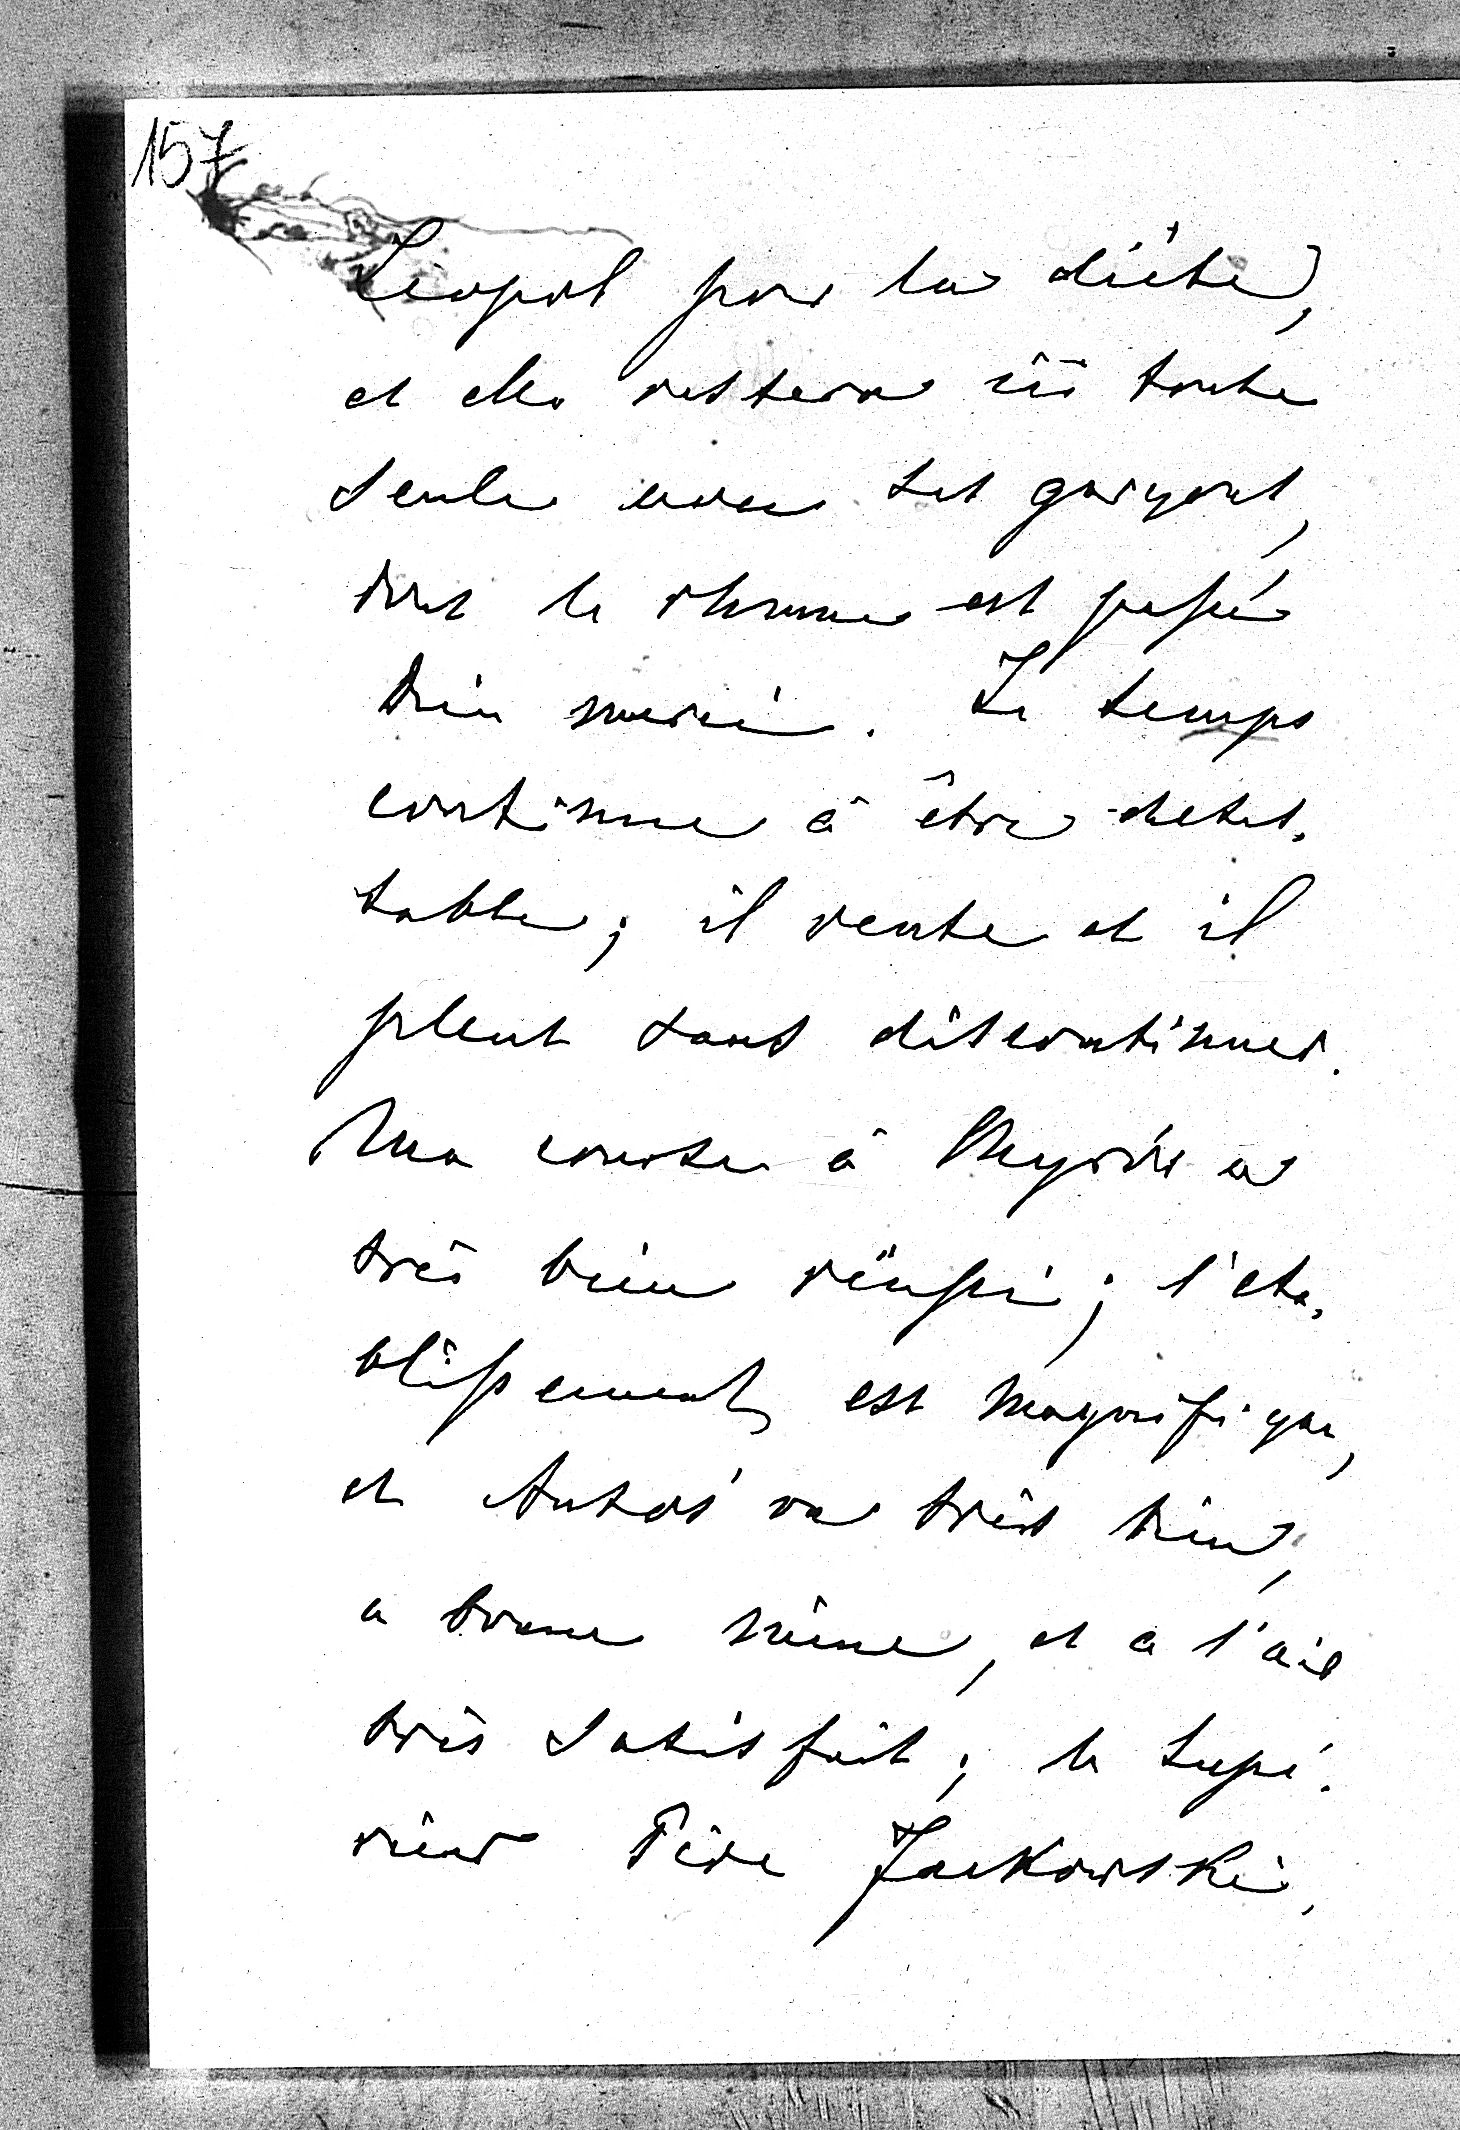 157
Léopol pour la diète,
et elle restera ici toute
seule avec ses garçons,
dont le rhume est passé
Dieu merci. Le temps
continue à être detes,
table; il vente et il
pleut sans discontinuer.
Ma course à Chyrów a
très bien réussi; l'éta,
blissement est magnifique,
et Antoś va très bien,
a bonne mine, et a l'air
très satisfait; le supé,
rieur Père Jackowski,